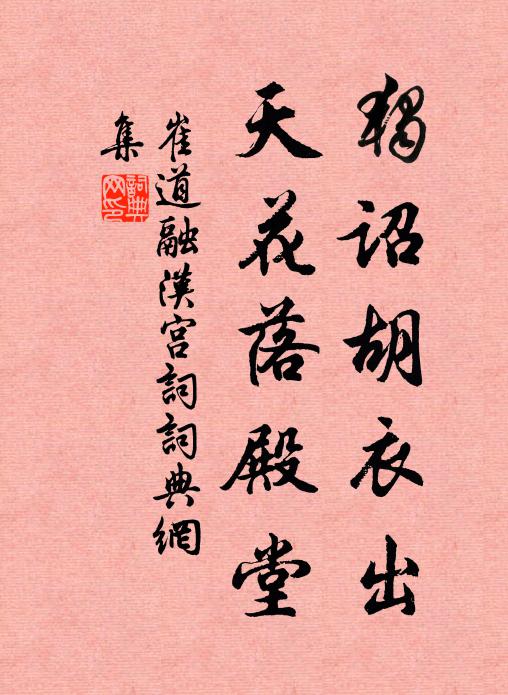 獨詔胡衣出
天花落殿堂
崔道融漢宮詞詞典網
集
詞典
网印